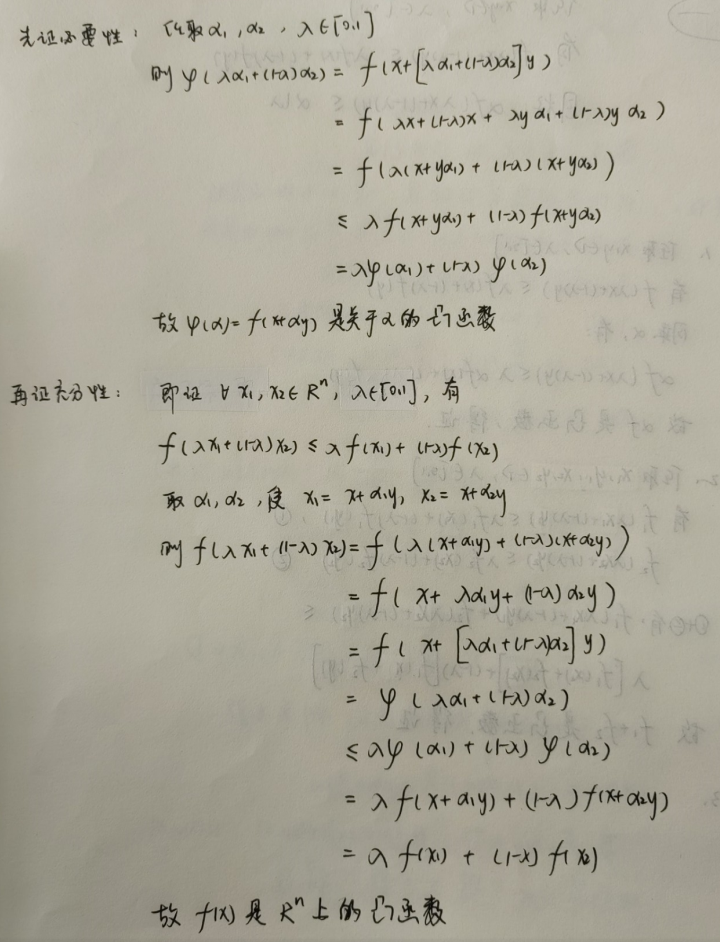 先证必要性： 任取α₁,α₂,λ∈[0,1]
则 φ(λα₁+(1-λ)α₂) = f(x+[λα₁+(1-λ)α₂]y)
= f(λx+(1-λ)x+λyα₁+(1-λ)yα₂)
= f(λ(x+yα₁)+(1-λ)(x+yα₂))
≤ λf(x+yα₁)+(1-λ)f(x+yα₂)
=λφ(α₁)+(1-λ)φ(α₂)
故 φ(α)=f(x+αy) 是关于α的凸函数
再证充分性： 即证 ∀ x₁,x₂∈Rⁿ, λ∈[0,1], 有
f(λx₁+(1-λ)x₂) ≤ λf(x₁)+(1-λ)f(x₂)
取 α₁,α₂,使 x₁=x+α₁y, x₂=x+α₂y
则 f(λx₁+(1-λ)x₂)= f(λ(x+α₁y)+(1-λ)(x+α₂y))
= f(x+λα₁y+(1-λ)α₂y)
= f(x+[λα₁+(1-λ)α₂]y)
= φ(λα₁+(1-λ)α₂)
≤ λφ(α₁)+(1-λ)φ(α₂)
= λf(x+α₁y)+(1-λ)f(x+α₂y)
= λf(x₁)+(1-λ)f(x₂)
故 f(x) 是 Rⁿ 上的凸函数